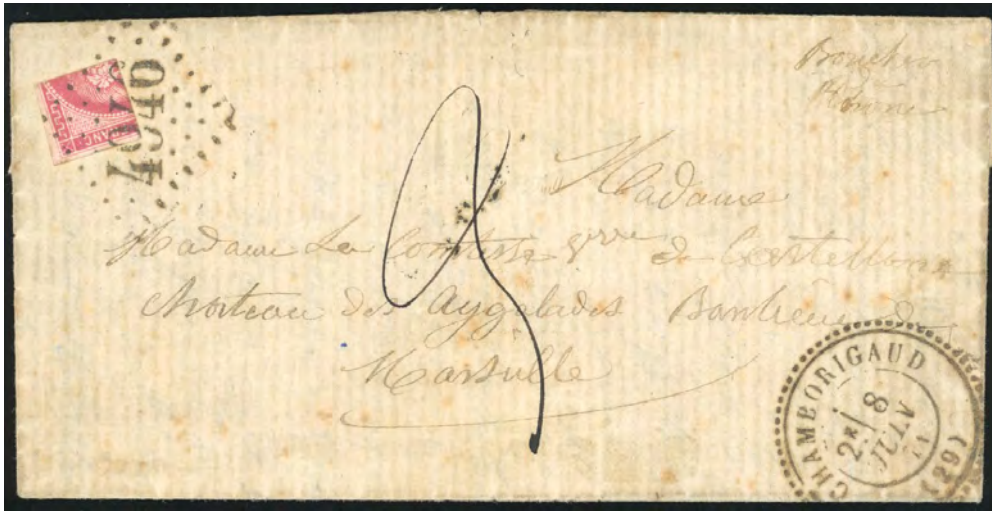 4046
FRANC
Madame
Madame La Comtesse de Castellane
Chateau des Aygalades Banlieue de
Marseille
CHAMBORIGAUD
2E/ 8
JUIN
71
(29)